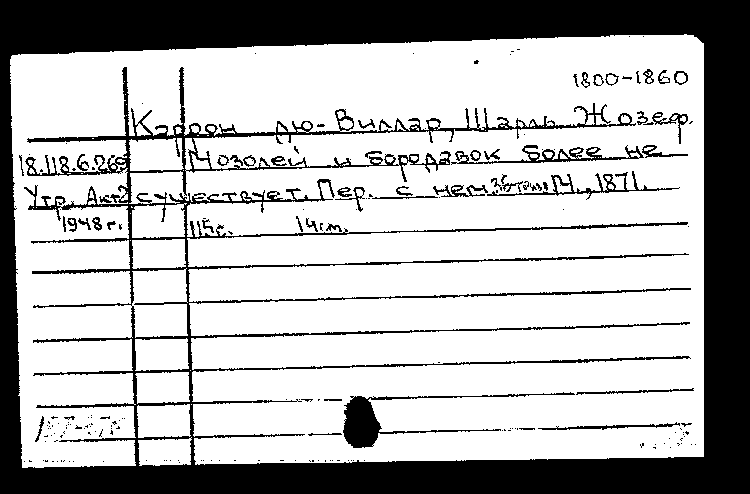 1800-1860
Каррон дю-Виллар, Шарль Жозеф.
18.118.6.269 Мозолей и бородавок более не
Утр. Акт2 существует. Пер. с нем. М., 1871.
1948 г. 115с. 14см.